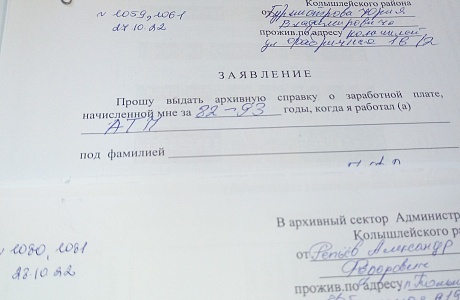 Колышлейского района
№ 1059, 1061
27.10.22
от Бурмистрова Юрия
Владимировича
прожив.по адресу
ул 1В/2
ЗАЯВЛЕНИЕ
Прошу выдать архивную справку о заработной плате,
начисленной мне за 82-93 годы, когда я работал (а)
АТП
под фамилией
В архивный сектор Админист
Колышлейского ра
1080, 1081
28.10.22
от Репьёв Александр
Фёдорович
прожив.по адресу